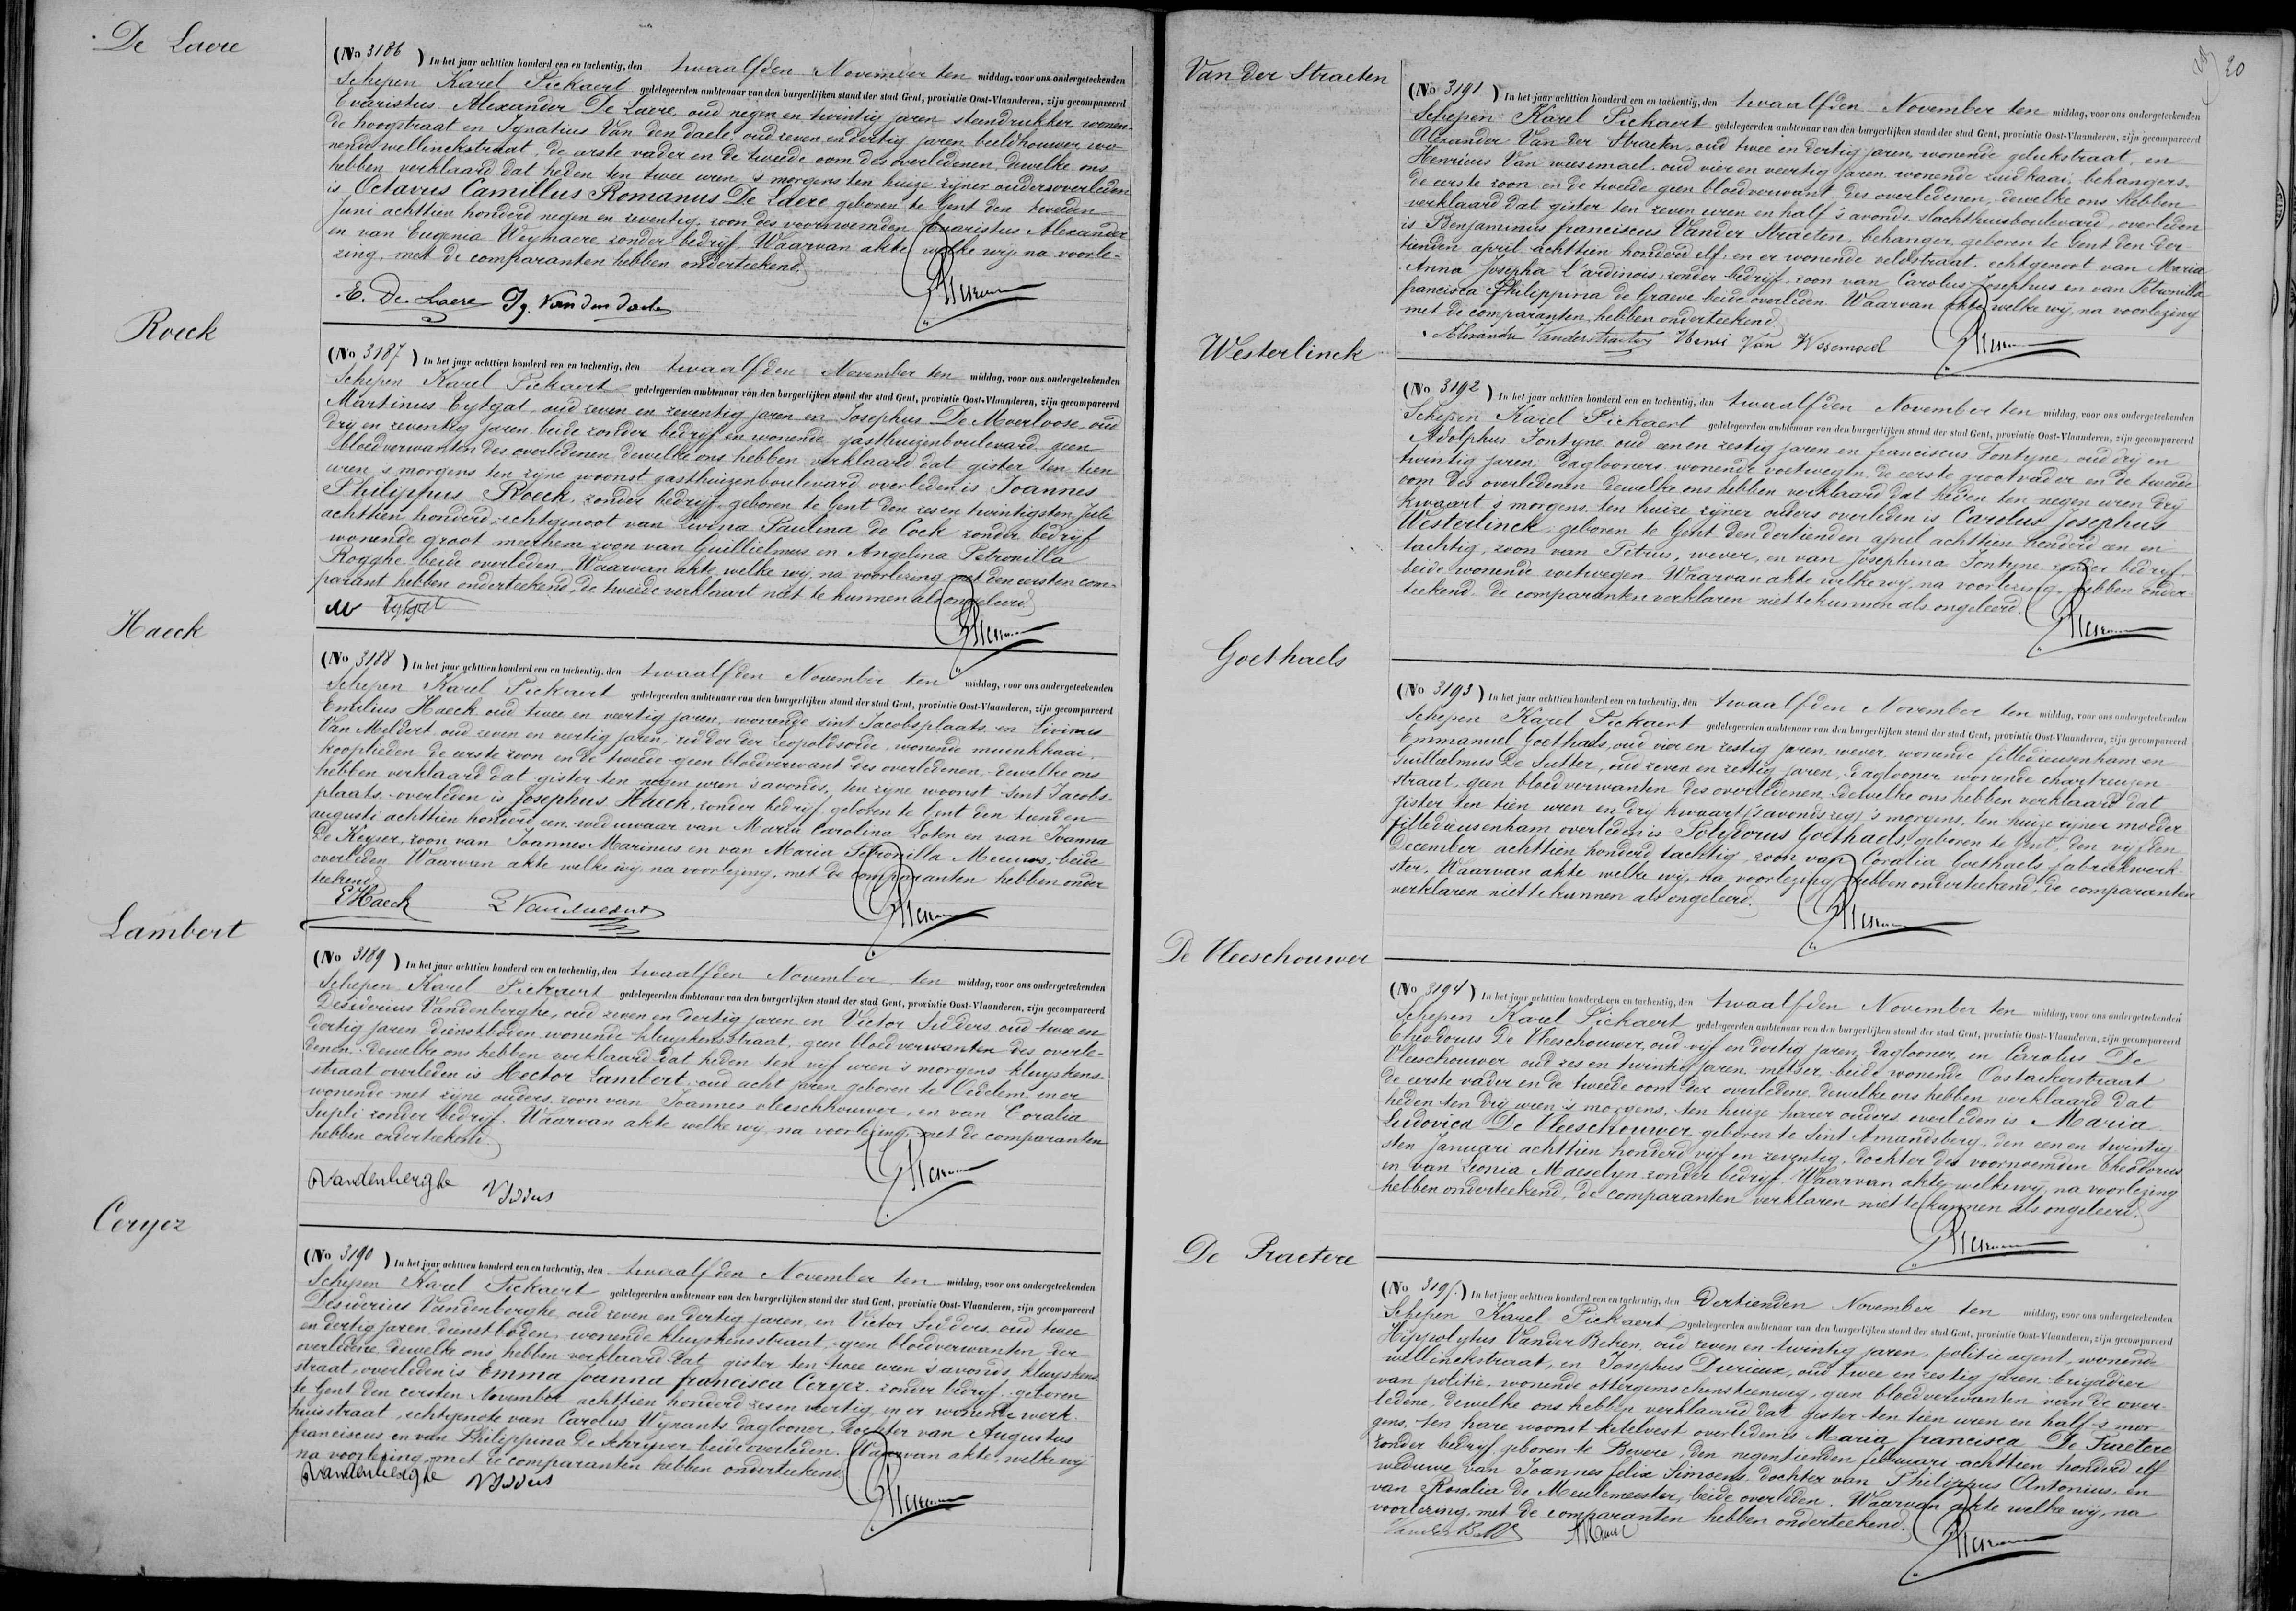 De Laere
(No 3186) In het jaar achttien honderd een en tachentig, den twaalfden November ten middag, voor ons ondergeteekenden
Schepen Karel Pickaert gedelegeerden ambtenaar van den burgerlijken stand der stad Gent, provintie Oost-Vlaanderen, zijn gecompareerd
Evaristus Alexander De Laere, oud negen en twintig jaren steendrukker, wonen-
de hoogstraat en Ignatius Van den daele, oud zeven en dertig jaren beeldhouwer wo-
nende wellinckstraat, de eerste vader en de tweede oom des overledenen dewelke ons
hebben verklaard dat heden ten twee uren 's morgens ten huize zijner ouders overleden
is Octavus Camillus Romanus De Laere geboren te Gent den tweeden
Juni achttien honderd negen en zeventig zoon des voornoemden Evaristus Alexander
en van Eugenia Weymaere zonder bedrijf. Waarvan akte welke wij na voorle-
zing, met de comparanten hebben onderteekend.
E. De Laere Ig. Van den daele
Roeck
(No 3187) In het jaar achttien honderd een en tachentig, den twaalfden November ten middag, voor ons ondergeteekenden
Schepen Karel Pickaert gedelegeerden ambtenaar van den burgerlijken stand der stad Gent, provintie Oost-Vlaanderen, zijn gecompareerd
Martinus Eytgat, oud zeven en zeventig jaren en Josephus De Moerloose, oud
drij en zeventig jaren beide zonder bedrijf en wonende gasthuizenboulevard geen
bloedverwanten des overledenen dewelke ons hebben verklaard dat gister ten tien
uren 's morgens ten zijne woonst gasthuizenboulevard overleden is Joannes
Philippus Roeck, zonder bedrijf, geboren te Gent den zes en twintigsten Juli
achttien honderd, echtgenoot van Livina Paulina de Cock zonder bedrijf
wonende groot meerhem zoon van Guillielmus en Angelina Petronilla
Rogghe beide overleden. Waarvan akte welke wij, na voorlezing met den eersten com-
parant hebben onderteekend, de tweede verklaart niet te kunnen als ongeleerd.
M Eytgat
Haeck
(No 3188) In het jaar achttien honderd een en tachentig, den twaalfden November ten middag, voor ons ondergeteekenden
Schepen Karel Pickaert gedelegeerden ambtenaar van den burgerlijken stand der stad Gent, provintie Oost-Vlaanderen, zijn gecompareerd
Emilius Haeck oud twee en veertig jaren, wonende sint Jacobsplaats en Livinus
Van Meldert oud zeven en veertig jaren, ridder der Leopoldsorde, wonende muinkkaai,
kooplieden de eerste zoon en de tweede geen bloedverwant des overledenen, dewelke ons
hebben verklaard dat gister ten negen uren 's avonds, ten zijne woonst Sint Jacobs-
plaats, overleden is Josephus Haeck, zonder bedrijf, geboren te Gent den tienden
augusti achttien honderd een, weduwaar van Maria Carolina Loten en van Joanna
De Keyser, zoon van Joannes Marinus en van Maria Petronilla Meeuws, beide
overleden Waarvan akte welke wij na voorlezing, met de comparanten hebben onder
teekend.
E Haeck L Van Meldert
Lambert
(No 3189) In het jaar achttien honderd een en tachentig, den twaalfden November ten middag, voor ons ondergeteekenden
Schepen Karel Pickaert gedelegeerden ambtenaar van den burgerlijken stand der stad Gent, provintie Oost-Vlaanderen, zijn gecompareerd
Desiderius Vandenberghe, oud zeven en dertig jaren en Victor Sidders oud twee en
dertig jaren dienstboden wonende kluyskensstraat, geen bloedverwanten des overle-
denen dewelke ons hebben verklaard dat heden ten vijf uren 's morgens kluyskens-
straat overleden is Hector Lambert, oud acht jaren geboren te Oedelem, en er
wonende met zijne ouders, zoon van Joannes vleeschhouwer, en van Coralia
Supli zonder bedrijf. Waarvan akte welke wij na voorlezing met de comparanten
hebben onderteekend.
DVandenberghe
Ceryez
(No 3190) In het jaar achttien honderd een en tachentig, den twaalfden November ten middag, voor ons ondergeteekenden
Schepen Karel Pickaert gedelegeerden ambtenaar van den burgerlijken stand der stad Gent, provintie Oost-Vlaanderen, zijn gecompareerd
Desiderius Vandenberghe oud zeven en dertig jaren, en Victor Sidders, oud twee
en dertig jaren dienstboden, wonende kluyskensstraat, geen bloedverwanten der
overledene, dewelke ons hebben verklaard dat gister ten twee uren 's avonds, kluyskens-
straat, overleden is Emma Joanna francisca Ceryez zonder bedrijf geboren
te Gent den eersten November achttien honderd zes en veertig, en er wonende werk-
huisstraat, echtgenote van Carolus Wynants daglooner, dochter van Augustus
franciscus en van Philippina De Schryver beide overleden. Waarvan akte, welke wij
na voorlezing met de comparanten hebben onderteekend.
DVandenberghe
20
Van der Straeten
(No 3191) In het jaar achttien honderd een en tachentig, den twaalfden November ten middag, voor ons ondergeteekenden
Schepen Karel Pickaert gedelegeerden ambtenaar van den burgerlijken stand der stad Gent, provintie Oost-Vlaanderen, zijn gecompareerd
Alexander Van der Straeten, oud twee en dertig jaren, wonende gelukstraat, en
Henricus Van weesemael, oud vier en veertig jaren wonende zuidkaai, behangers,
de eerste zoon en de tweede geen bloedverwant des overledenen, dewelke ons hebben
verklaard dat gister ten zeven uren en half 's avonds slachthuisboulevard, overleden
is Benjaminus franciscus Vander Straeten, behanger, geboren te Gent den der-
tienden april achttien honderd elf, en er wonende veldstraat, echtgenoot van Maria
Anna Josepha L'ardinois, zonder bedrijf, zoon van Carolus Josephus en van Petronilla
francisca Philippina de Graeve, beide overleden. Waarvan akte welke wij, na voorlezing
met de comparanten, hebben onderteekend.
Alexandre Vanderstraeten Henri Van Wesemael
Westerlinck
(No 3192) In het jaar achttien honderd een en tachentig, den twaalfden November ten middag, voor ons ondergeteekenden
Schepen Karel Pickaert gedelegeerden ambtenaar van den burgerlijken stand der stad Gent, provintie Oost-Vlaanderen, zijn gecompareerd
Adolphus Fontyne oud een en zestig jaren en franciscus Fontyne, oud drij en
twintig jaren, daglooners, wonende voetwegen, de eerste grootvader en de tweede
oom des overledenen dewelke ons hebben verklaard dat heden ten negen uren drij
kwaart 's morgens, ten huize zijner ouders overleden is Carolus Josephus
Westerlinck geboren te Gent den dertienden april achttien honderd een en
tachtig, zoon van Petrus, wever, en van Josephina Fontyne zonder bedrijf
beide wonende voetwegen Waarvan akte welke wij, na voorlezing, hebben onder-
teekend, de comparanten verklaren niet te kunnen als ongeleerd.
Goethaels
(No 3193) In het jaar achttien honderd een en tachentig, den twaalfden November ten middag, voor ons ondergeteekenden
Schepen Karel Pickaert gedelegeerden ambtenaar van den burgerlijken stand der stad Gent, provintie Oost-Vlaanderen, zijn gecompareerd
Emmanuel Goethals, oud vier en zestig jaren, wever, wonende filledieusenham en
Guillielmus De Sutter, oud zeven en zestig jaren, daglooner wonende chartreuzen
straat, geen bloedverwanten des overledenen, dewelke ons hebben verklaard dat
gister ten tien uren en drij kwaart ('s avonds zeg) 's morgens, ten huize zijner moeder
filledieusenham overleden is Polydorus Goethaels, geboren te Gent, den vijfden
December achttien honderd tachtig, zoon van Coralia Goethaels fabriekwerk-
ster. Waarvan akte welke wij, na voorlezing hebben onderteekend, de comparanten
verklaren niet te kunnen als ongeleerd.
De Vleeschouwer
(No 3194) In het jaar achttien honderd een en tachentig, den twaalfden November ten middag, voor ons ondergeteekenden
Schepen Karel Pickaert gedelegeerden ambtenaar van den burgerlijken stand der stad Gent, provintie Oost-Vlaanderen, zijn gecompareerd
Theodorus De Vleeschouwer, oud vijf en dertig jaren, daglooner, en Carolus De
Vleeschouwer oud zes en twintig jaren, metser, beide wonende Oostackerstraat
de eerste vader en de tweede oom der overledene, dewelke ons hebben verklaard dat
heden ten drij uren 's morgens, ten huize harer ouders overleden is Maria
Ludovica De Vleeschouwer geboren te Sint Amandsberg, den een en twintig-
sten Januari achttien honderd vijf en zeventig, dochter des voornoemden Theodorus
en van Leonia Maeselyn zonder bedrijf. Waarvan akte welke wij na voorlezing
hebben onderteekend, de comparanten verklaren niet te kunnen als ongeleerd.
De Praetere
(No 3195.) In het jaar achttien honderd een en tachentig, den dertienden November ten middag, voor ons ondergeteekenden
Schepen Karel Pickaert gedelegeerden ambtenaar van den burgerlijken stand der stad Gent, provintie Oost-Vlaanderen, zijn gecompareerd
Hippolytus Vander Beken, oud zeven en twintig jaren, politie agent, wonende
wellinckstraat, en Josephus Durieux, oud twee en zestig jaren brigadier
van politie, wonende ottergemschensteenweg, geen bloedverwanten van de over-
ledene, dewelke ons hebben verklaard dat gister ten tien uren en half 's mor-
gens, ten hare woonst ketelvest overleden is Maria francisca De Praetere
zonder bedrijf, geboren te Bevere, den negentienden februari achttien honderd elf
weduwe van Joannes felix Simoens, dochter van Philippus Antonius, en
van Rosalia De Meulemeester, beide overleden. Waarvan akte welke wij, na
voorlezing, met de comparanten hebben onderteekend.